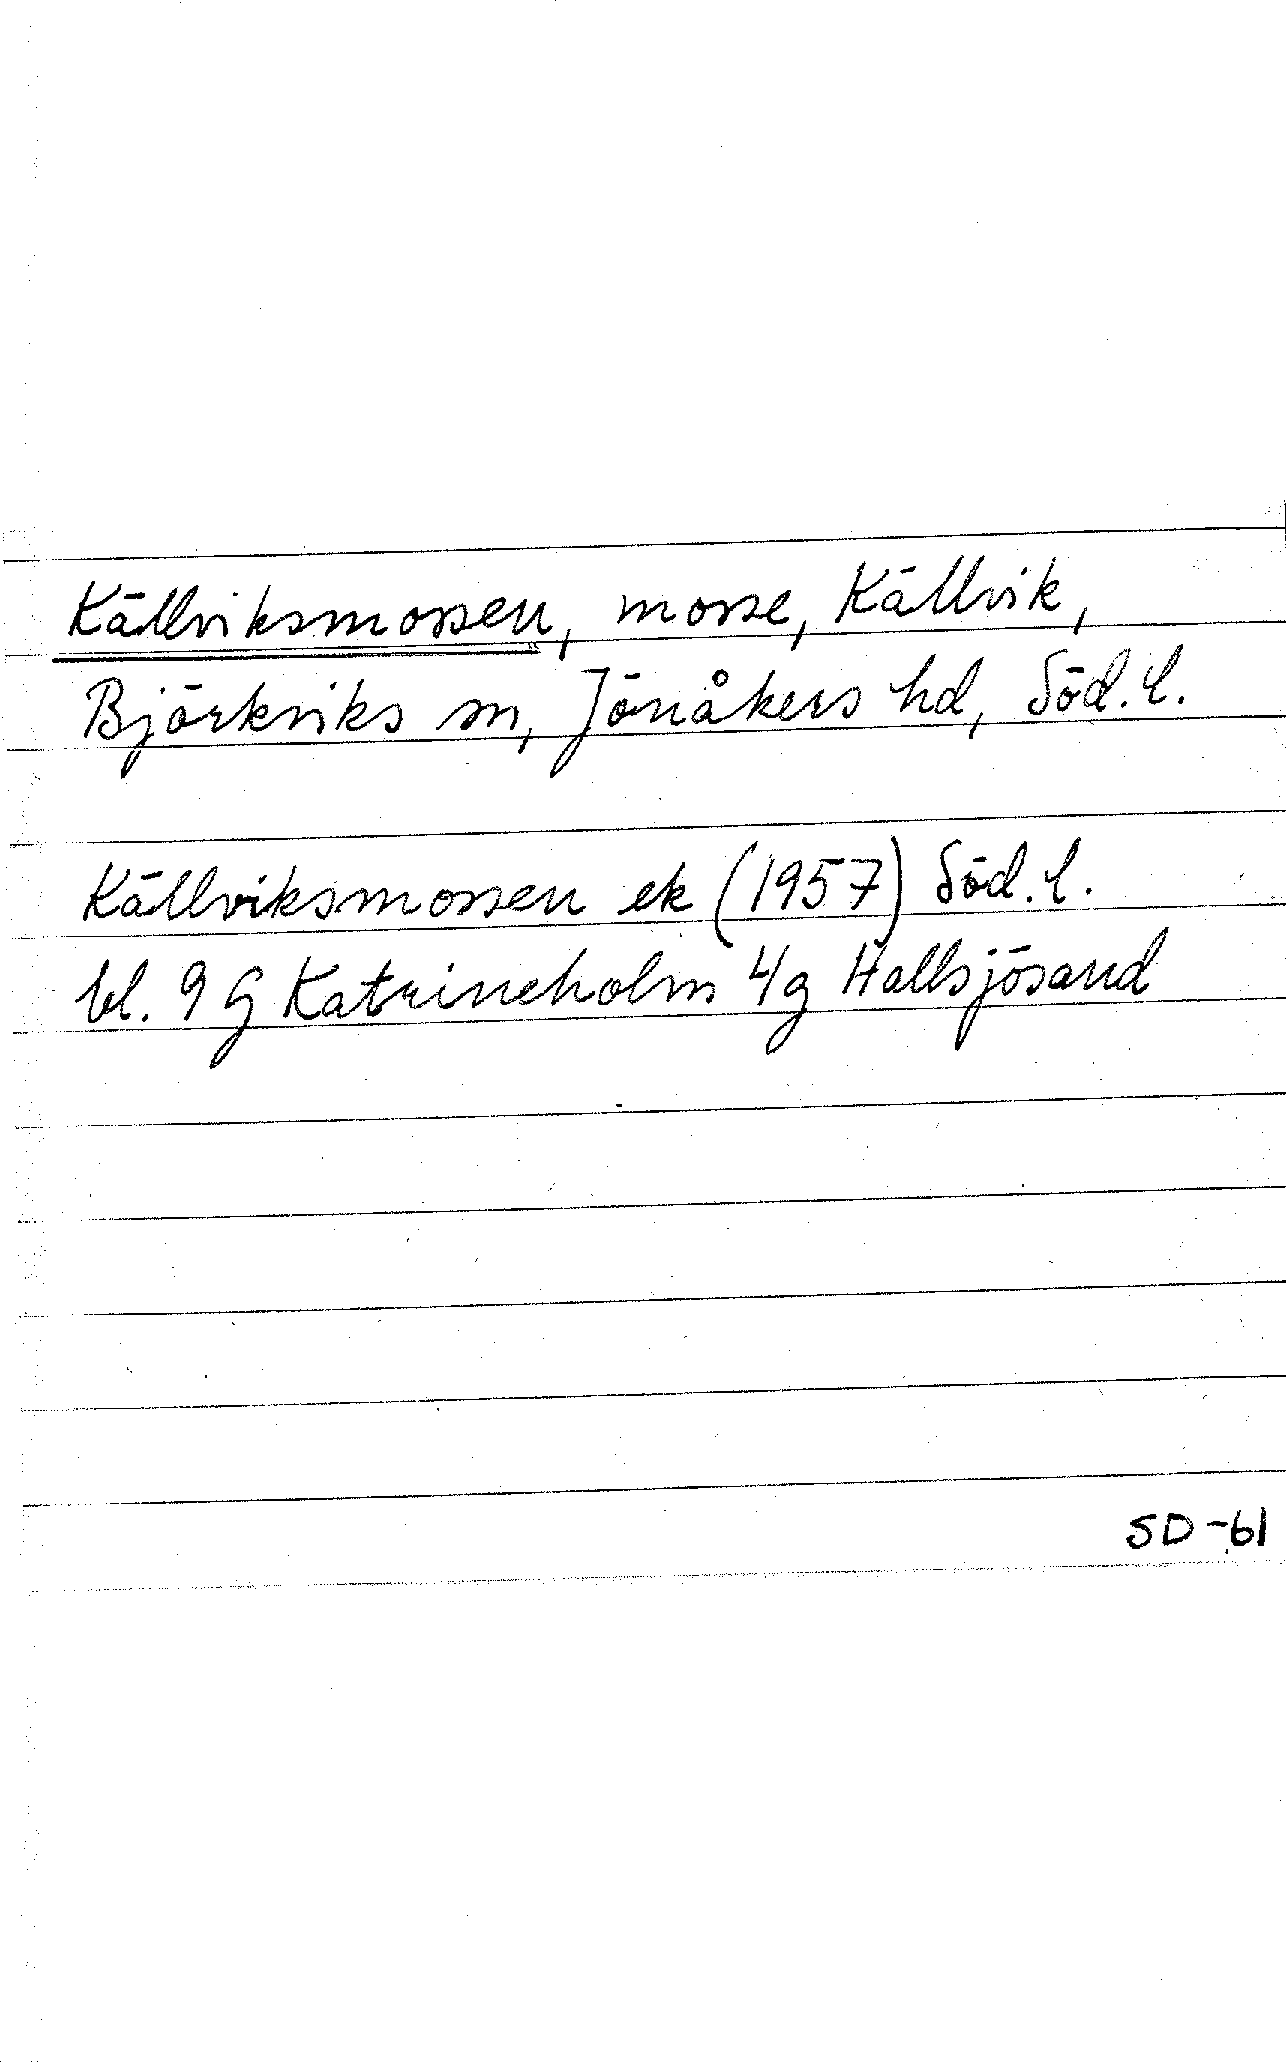 Källviksmossen, mosse, Källvik,
Björkviks sn, Jönåkers hd, Söd. l.
Källviksmossen ek (1957) Söd. l.
bl. 9 G Katrineholm 4g Hallsjösand
SD -61